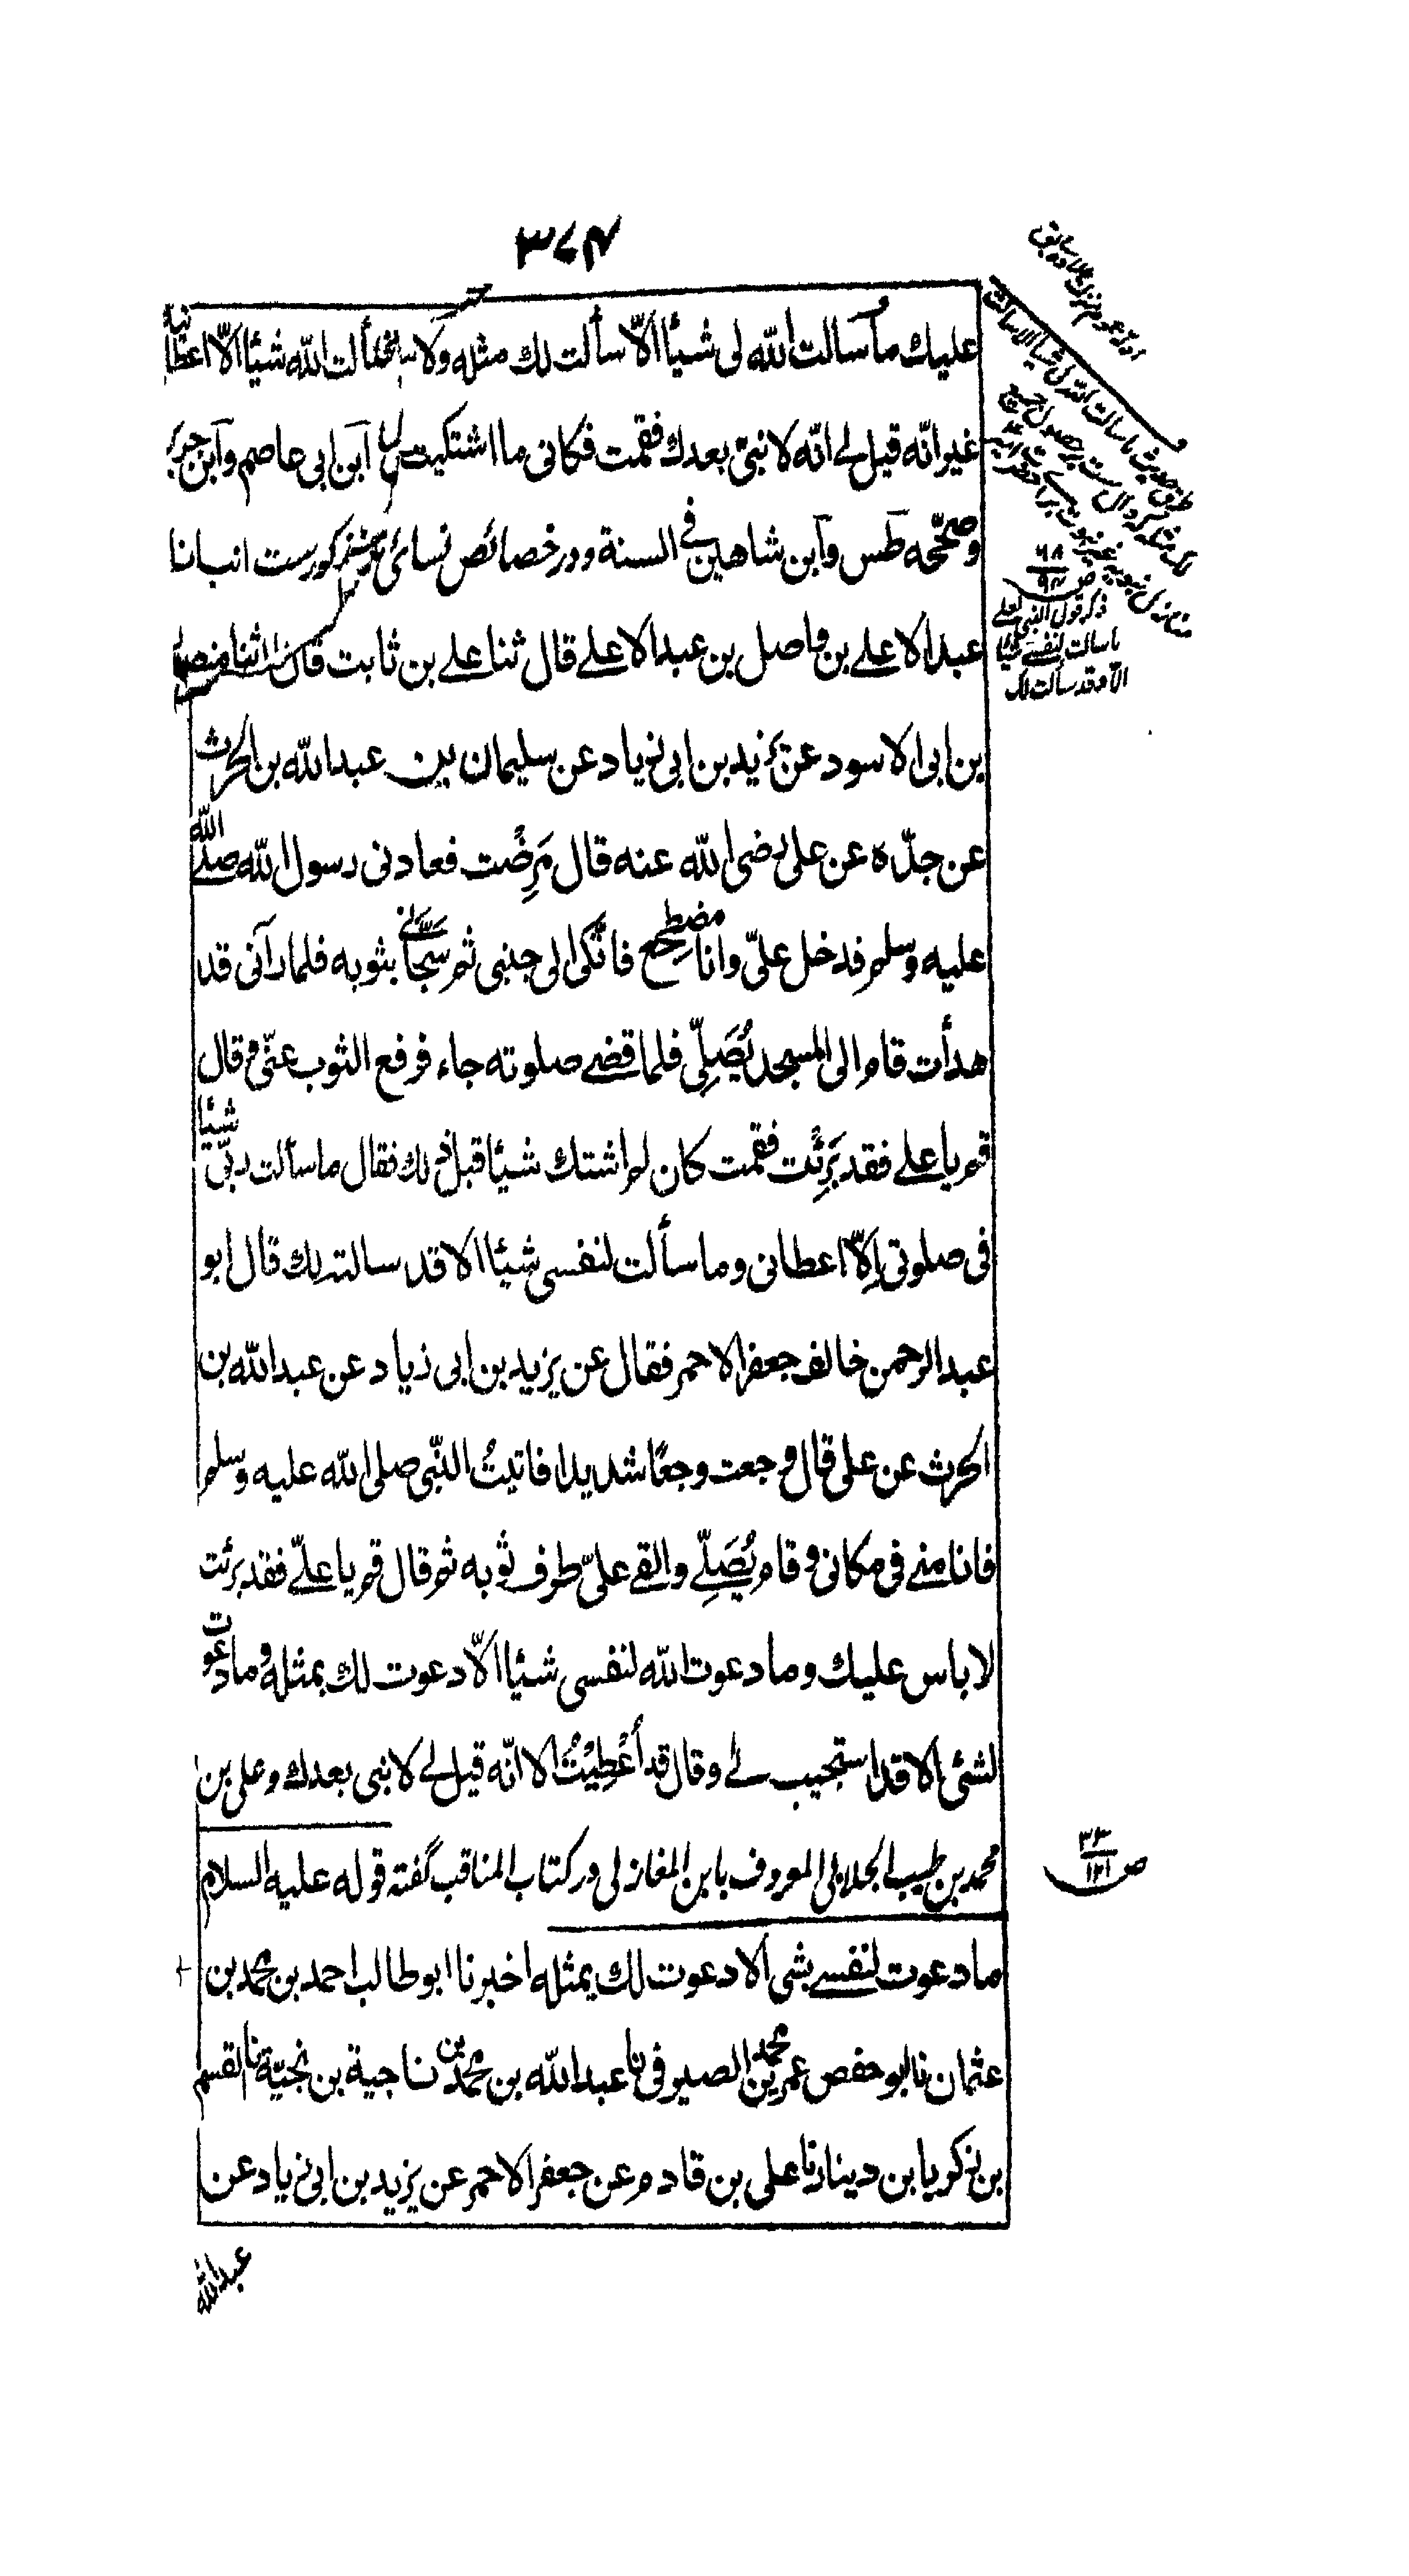 ۳۷۴
عليك ما سالت الله لى شيئا الّا سألت لك مثله ولا سألت الله شيئا الّا اعطانيه
غير انّه قيل لے انّه لا نبىّ بعدك فقمت فكانى ما اشتكيت ابن ابى عاصم وآبن جرير
وصحّحه طس وآبن شاهين فے السنة ودر خصائص نسائى مذكورست انبانا
عبد الاعلے بن واصل بن عبد الاعلے قال ثنا علے بن ثابت قال ثنا منصور
بن ابى الاسود عن يزيد بن ابى زياد عن سليمان بن عبد الله بن الحرث
عن جدّه عن على رضى الله عنه قال مَرِضْت فعادنى رسول الله صلے الله
عليه وسلم فدخل علىّ وانا مضطجع فاتّكى الى جنبى ثم سجّانے بثوبه فلما رآنى قد
هدأت قام الى المسجد يُصَلِّى فلما قضے صلوته جاء فرفع الثوب عنّى و قال
قم يا علے فقد بَرِئْت فقمت كان لم اشتك شيئا قبل ذلك فقال ما سألت ربّى شيئا
فى صلوتى اِلّا اعطانى وما سألت لنفسى شيئا الا قد سالته لك قال ابو
عبد الرحمن خالف جعفر الاحمر فقال عن يزيد بن ابى زياد عن عبد الله بن
الحرث عن على قال وجعت وجعًا شديدا فاتيتُ النّبى صلى الله عليه وسلم
فانامنے فى مكانى وقام يُصَلِّے والقے علىّ طرف ثوبه ثم قال قم يا علىّ فقد برئت
لا باس عليك وما دعوت الله لنفسى شيئا الّا دعوت لك بمثله وما دعوت
لشئ الا قد استجيب لے وقال قد اُعْطِيْتُ الا انّه قيل لے لا نبى بعدك وعلى بن
محمد بن طيب الجلابى المعروف بابن المغازلى در كتاب المناقب گفته قوله عليه السلام
ما دعوت لنفسے بشى الا دعوت لك بمثله اخبرنا ابو طالب احمد بن محمد بن
عثمان نا ابو حفص عمر بن محمد الصيرفى نا عبد الله بن محمد بن ناجية بن نجيّة نا القسم
بن زكريا بن دينار نا على بن قادم عن جعفر الاحمر عن يزيد بن ابى زياد عن
عبد الله
۶۸
ص ۹۴
ذكر قول النبى لعلے
ما سالت لنفسے شيئا
الا و قد سالت لك
۳۴
ص ۱۲۱